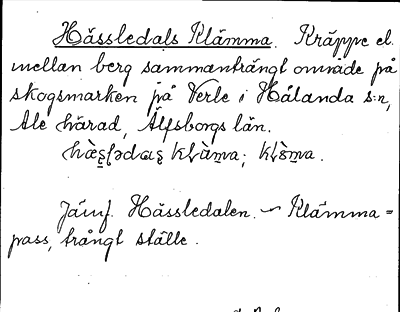 Hässledals Klämma. Kräppe el.
mellan berg sammanträngt område på
skogsmarken på Verle i Hålanda s:n,
Ale härad, Älfsborgs län.
Jämf. Hässledalen. ~ Klämma =
pass, trångt ställe.